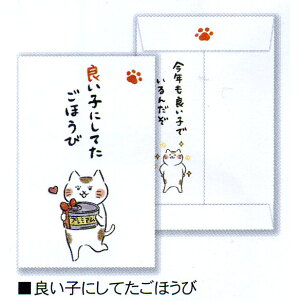 良い子にしてた
ごほうび
今年も良い子で
いるんだぞ
■良い子にしてたごほうび